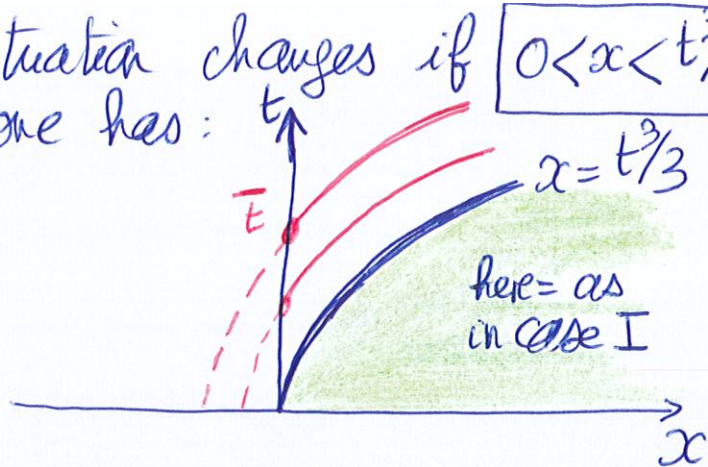 tuation changes if 0<x<t³/
one has:
t
x = t³/3
t̄
here = as
in case I
x